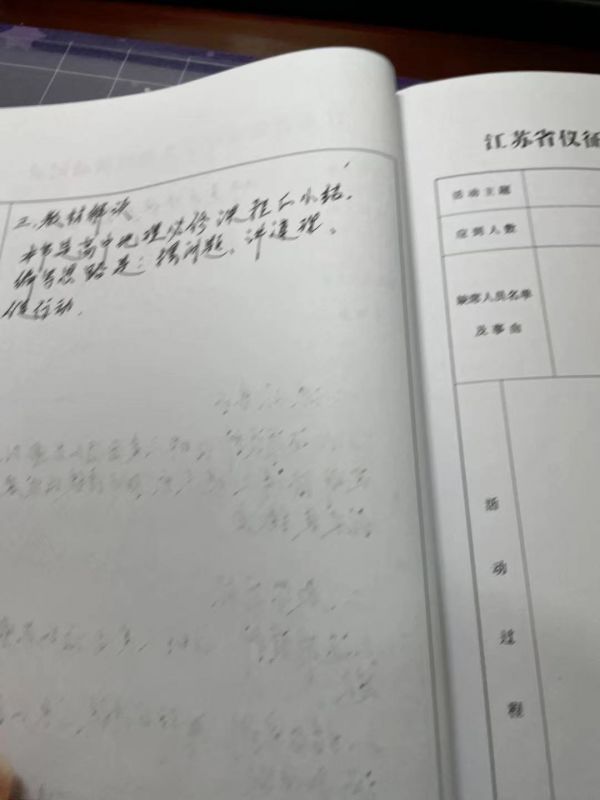 三、教材解决
本节是高中地理必修课程的小结,
编写思路是:摆问题、讲道理、
促行动.
江苏省仪征
活动主题
应到人数
缺席人员名单
及事由
活
动
过
程